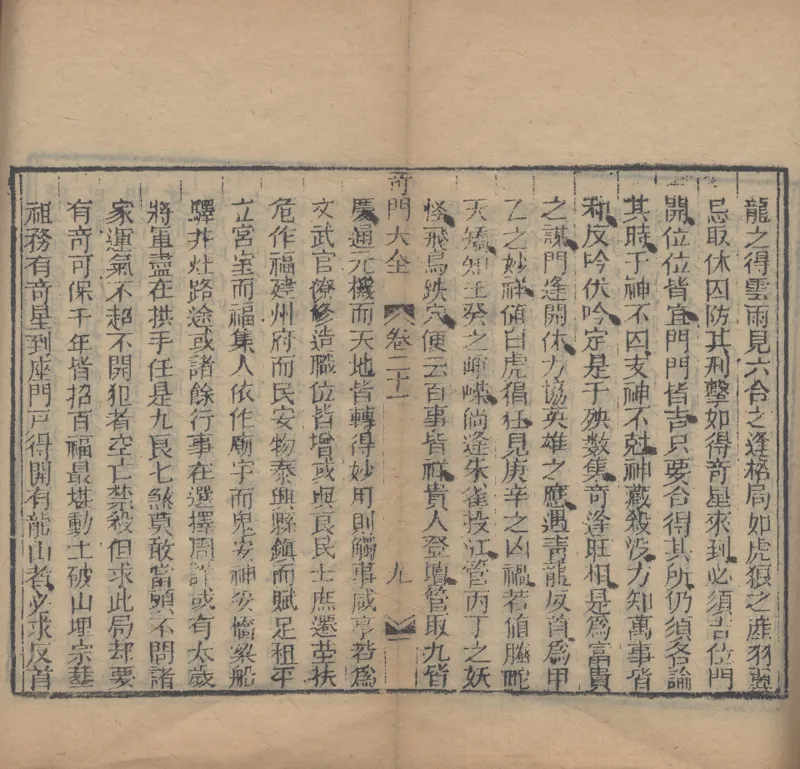 龍之得雲雨見六合之逢格局如虎狼之產羽翼
忌取休囚防其刑擊如得奇星來到必須吉位門
開位位皆宜門門皆吉只要合得其所仍須各論
其時于神不囚支神不尅神藏殺没力知萬事皆
和反吟伏吟定是于殃数集奇逢旺相是爲富貴
之謀門逢開休力協英雄之應遇青龍反首爲甲
乙之妙祥值白虎猖狂見庚辛之凶禍若值騰蛇
天矯知壬癸之崎嶸倘逢朱雀投江管丙丁之妖
怪飛鳥跌穴便云百事皆祥貴人登壇管取九皆
奇門大全 卷二十一 九
慶通元機而天地皆轉得妙用則觸事咸亨若爲
文武官僚修造職位皆增或與良民士庶遷塋扶
危作福建州府而民安物泰興縣鎮而賦足租平
立宮室而福集人依作廟宇而鬼安神妥橋梁船
驛井灶路途或諸餘行事在選擇周詳或有太歲
將軍盡在拱手任是九良七煞莫敢當頭不問諸
家運氣不超不開犯者空亡禁殺但求此局却要
有奇可保千年皆招百福最堪動土破山埋宗塟
祖務有奇星到座門戸得開有龍山者必求反首